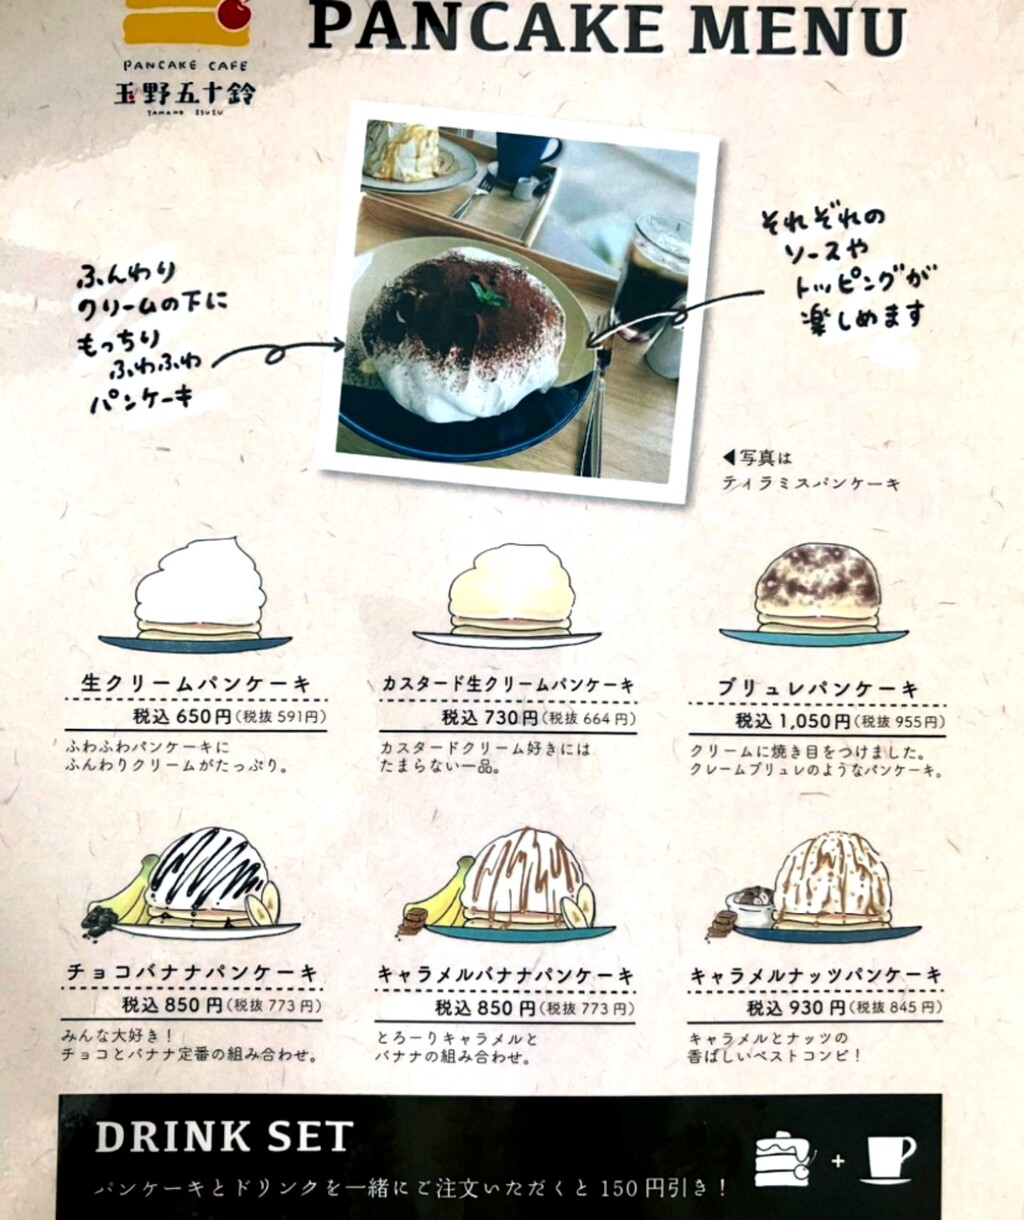 PANCAKE MENU
PANCAKE CAFE
玉野五十鈴
TAMANO ISUZU
ふんわり
クリームの下に
もっちり
ふわふわ
パンケーキ
それぞれの
ソースや
トッピングが
楽しめます
◀写真は
ティラミスパンケーキ
生クリームパンケーキ
税込 650円(税抜 591円)
ふわふわパンケーキに
ふんわりクリームがたっぷり。
カスタード生クリームパンケーキ
税込 730円(税抜 664円)
カスタードクリーム好きには
たまらない一品。
ブリュレパンケーキ
税込 1,050円(税抜 955円)
クリームに焼き目をつけました。
クレームブリュレのようなパンケーキ。
チョコバナナパンケーキ
税込 850円(税抜 773円)
みんな大好き!
チョコとバナナ定番の組み合わせ。
キャラメルバナナパンケーキ
税込 850円(税抜 773円)
とろーりキャラメルと
バナナの組み合わせ。
キャラメルナッツパンケーキ
税込 930円(税抜 845円)
キャラメルとナッツの
香ばしいベストコンビ!
DRINK SET
パンケーキとドリンクを一緒にご注文いただくと 150円引き!
+